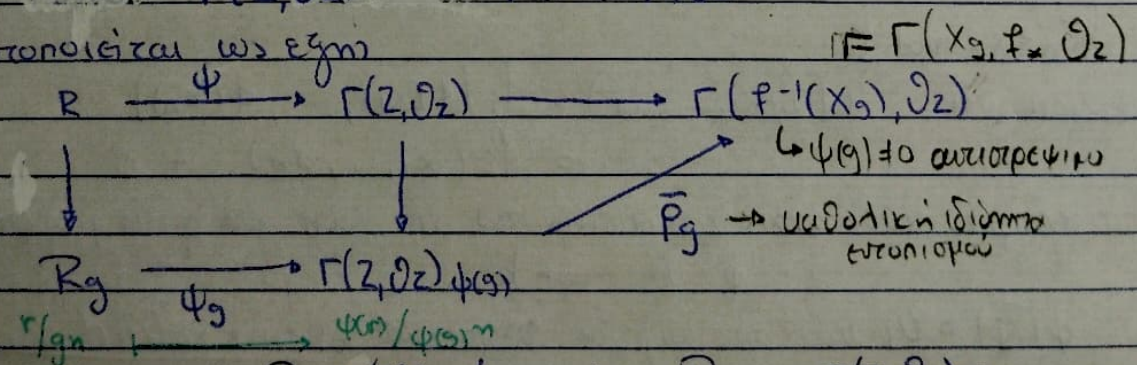 τοποιείται ως εξής Γ = Γ(X_g, f_* O_Z)
R —ψ→ Γ(Z, O_Z) → Γ(f^{-1}(X_g), O_Z)
↳ ψ(g) ≠ 0 αντιστρέψιμο
ρ̄_g → καθολική ιδιότητα
εντοπισμού
R_g —ψ_g→ Γ(Z, O_Z)_{ψ(g)}
r/gⁿ ↦ ψ(r)/ψ(g)ⁿ